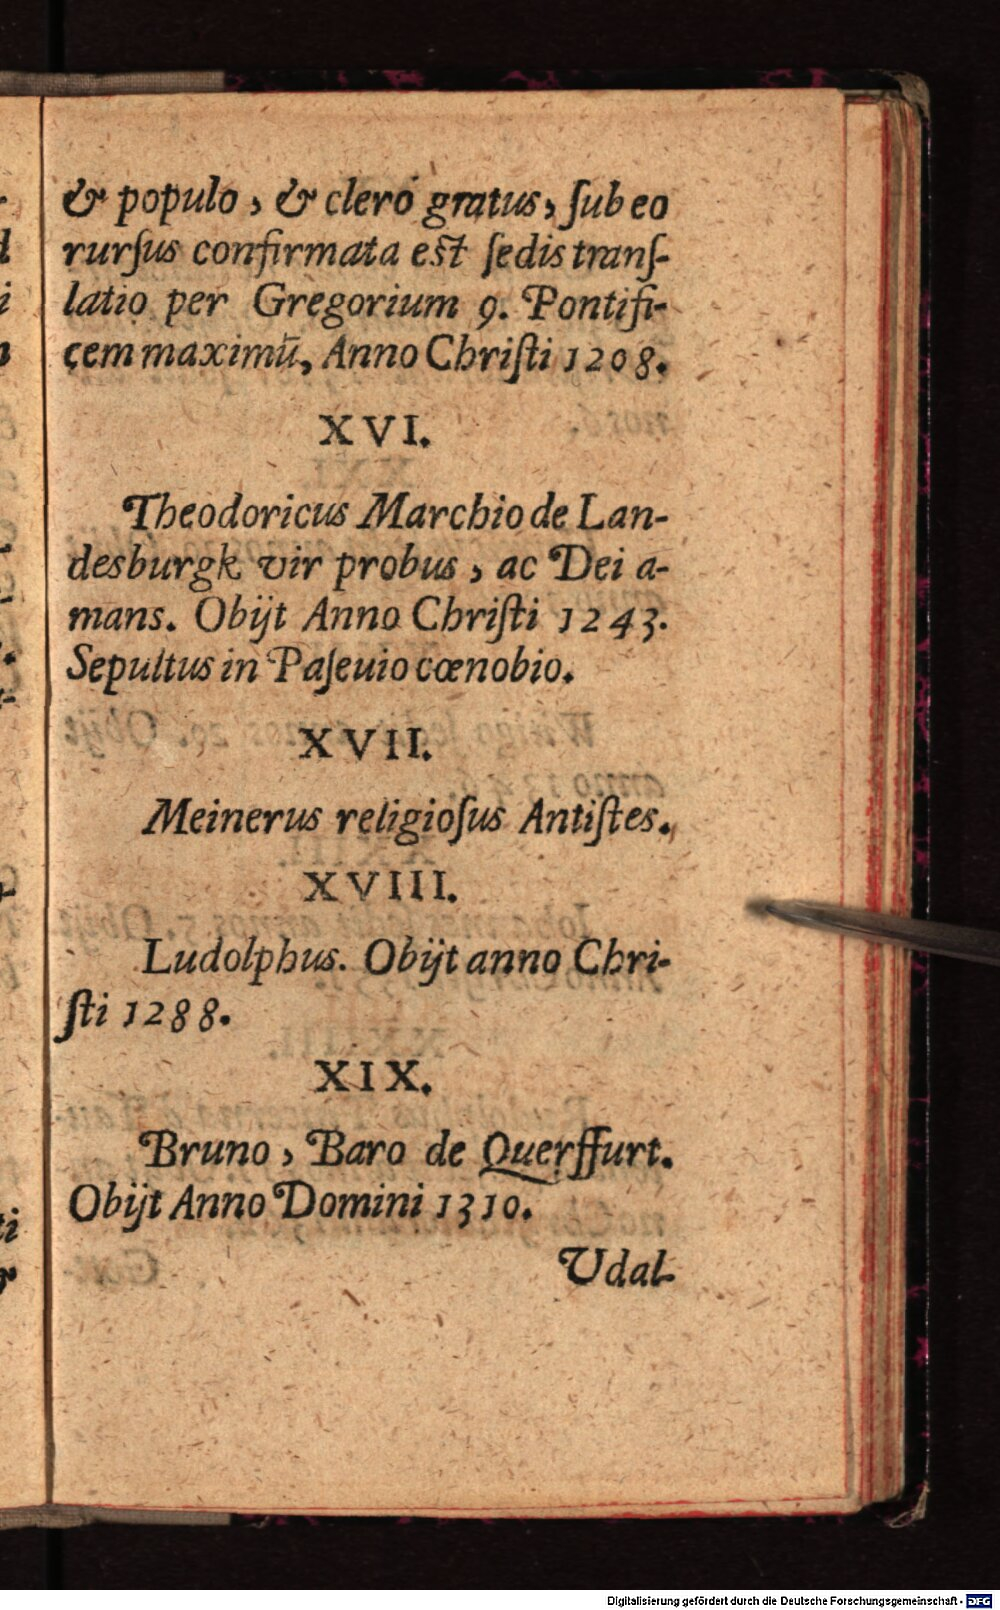 & populo, & clero gratus, ſub eo
rurſus confirmata eſt ſedis tranſ-
latio per Gregorium 9. Pontifi-
cem maximū, Anno Chriſti 1208.
XVI.
Theodoricus Marchio de Lan-
desburgk vir probus, ac Dei a-
mans. Obijt Anno Chriſti 1243.
Sepultus in Paſeuio cœnobio.
XVII.
Meinerus religioſus Antiſtes.
XVIII.
Ludolphus. Obijt anno Chri-
ſti 1288.
XIX.
Bruno, Baro de Querffurt.
Obijt Anno Domini 1310.
Udal-
Digitalisierung gefördert durch die Deutsche Forschungsgemeinschaft - DFG